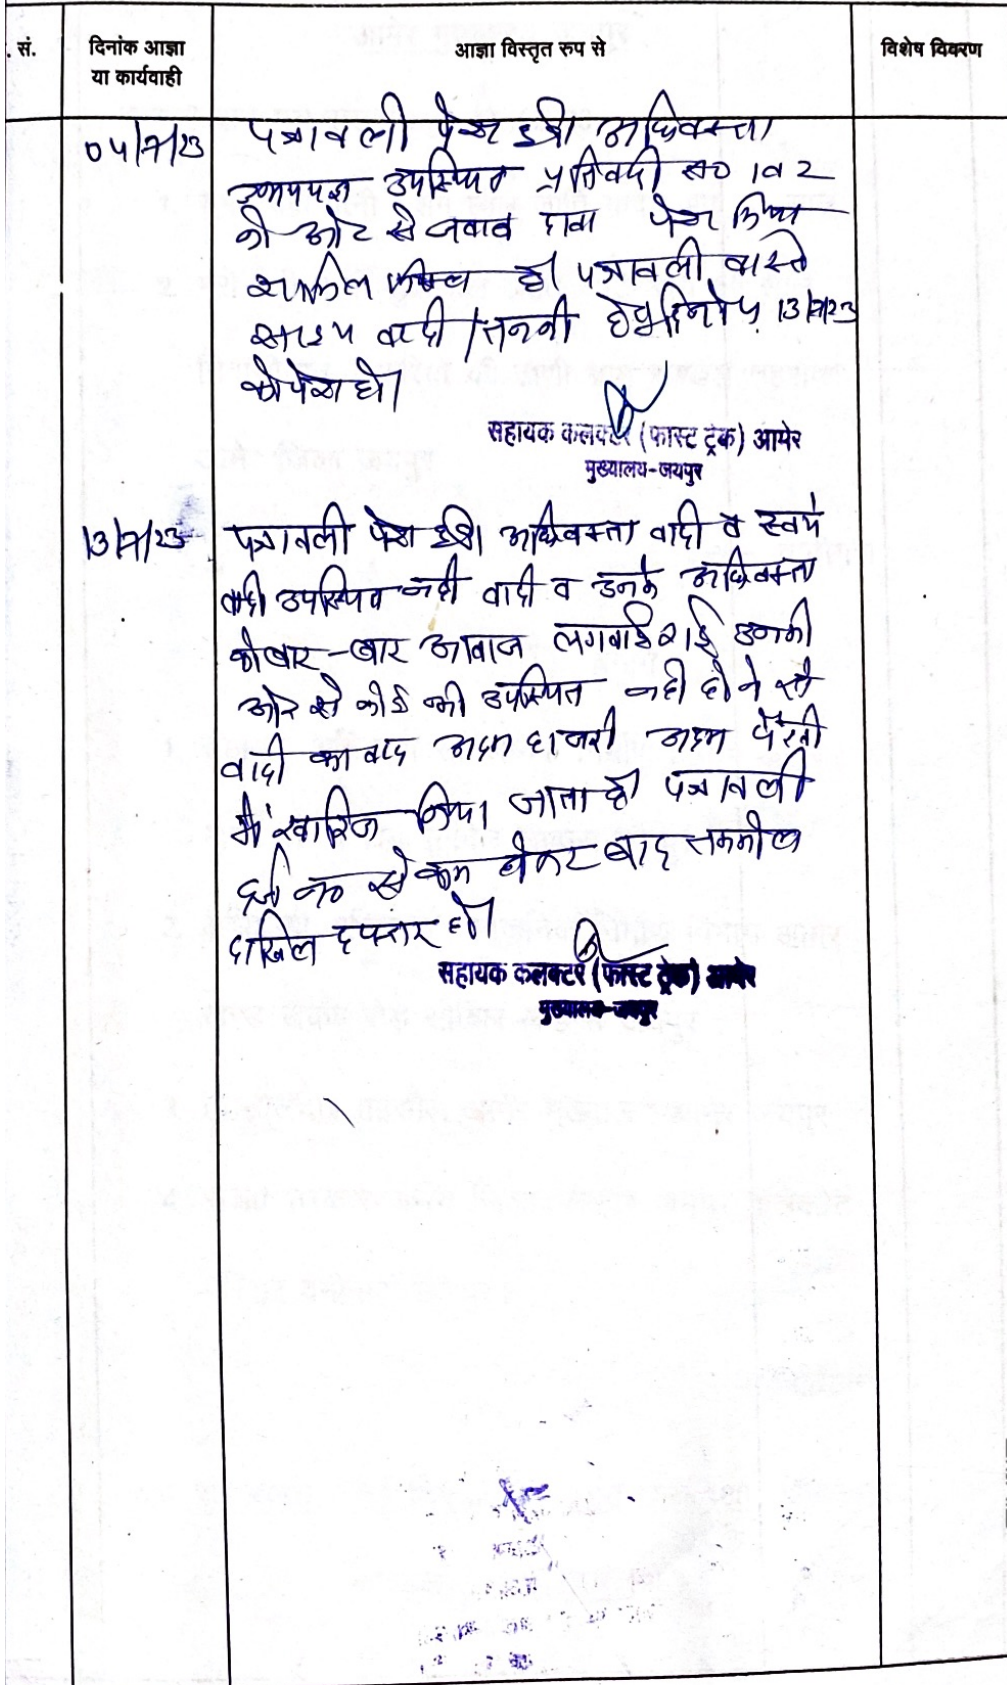 . सं.
दिनांक आज्ञा
या कार्यवाही
आज्ञा विस्तृत रुप से
विशेष विवरण
04/7/23
पत्रावली पेश हुई। अधिवक्ता
उभयपक्ष उपस्थित प्रतिवादी सं० 1 व 2
की ओर से जवाब दावा पेश किया
शामिल मिसल हो। पत्रावली वास्ते
साक्ष्य वादी / तनकी हेतु दिनांक 13/7/23
को पेश हो।
सहायक कलक्टर (फास्ट ट्रेक) आमेर
मुख्यालय-जयपुर
13/7/23
पत्रावली पेश हुई। अधिवक्ता वादी व स्वयं
वादी उपस्थित नहीं वादी व उनके अधिवक्ता
को बार-बार आवाज लगवाई गई उनकी
ओर से कोई भी उपस्थित नही होने से
वादी का वाद अदम हाजरी अदम पैरवी
में खारिज किया जाता है। पत्रावली
नं० से कम होकर बाद तकमील
दाखिल दफ्तर हो।
सहायक कलक्टर (फास्ट ट्रेक) आमेर
मुख्यालय-जयपुर